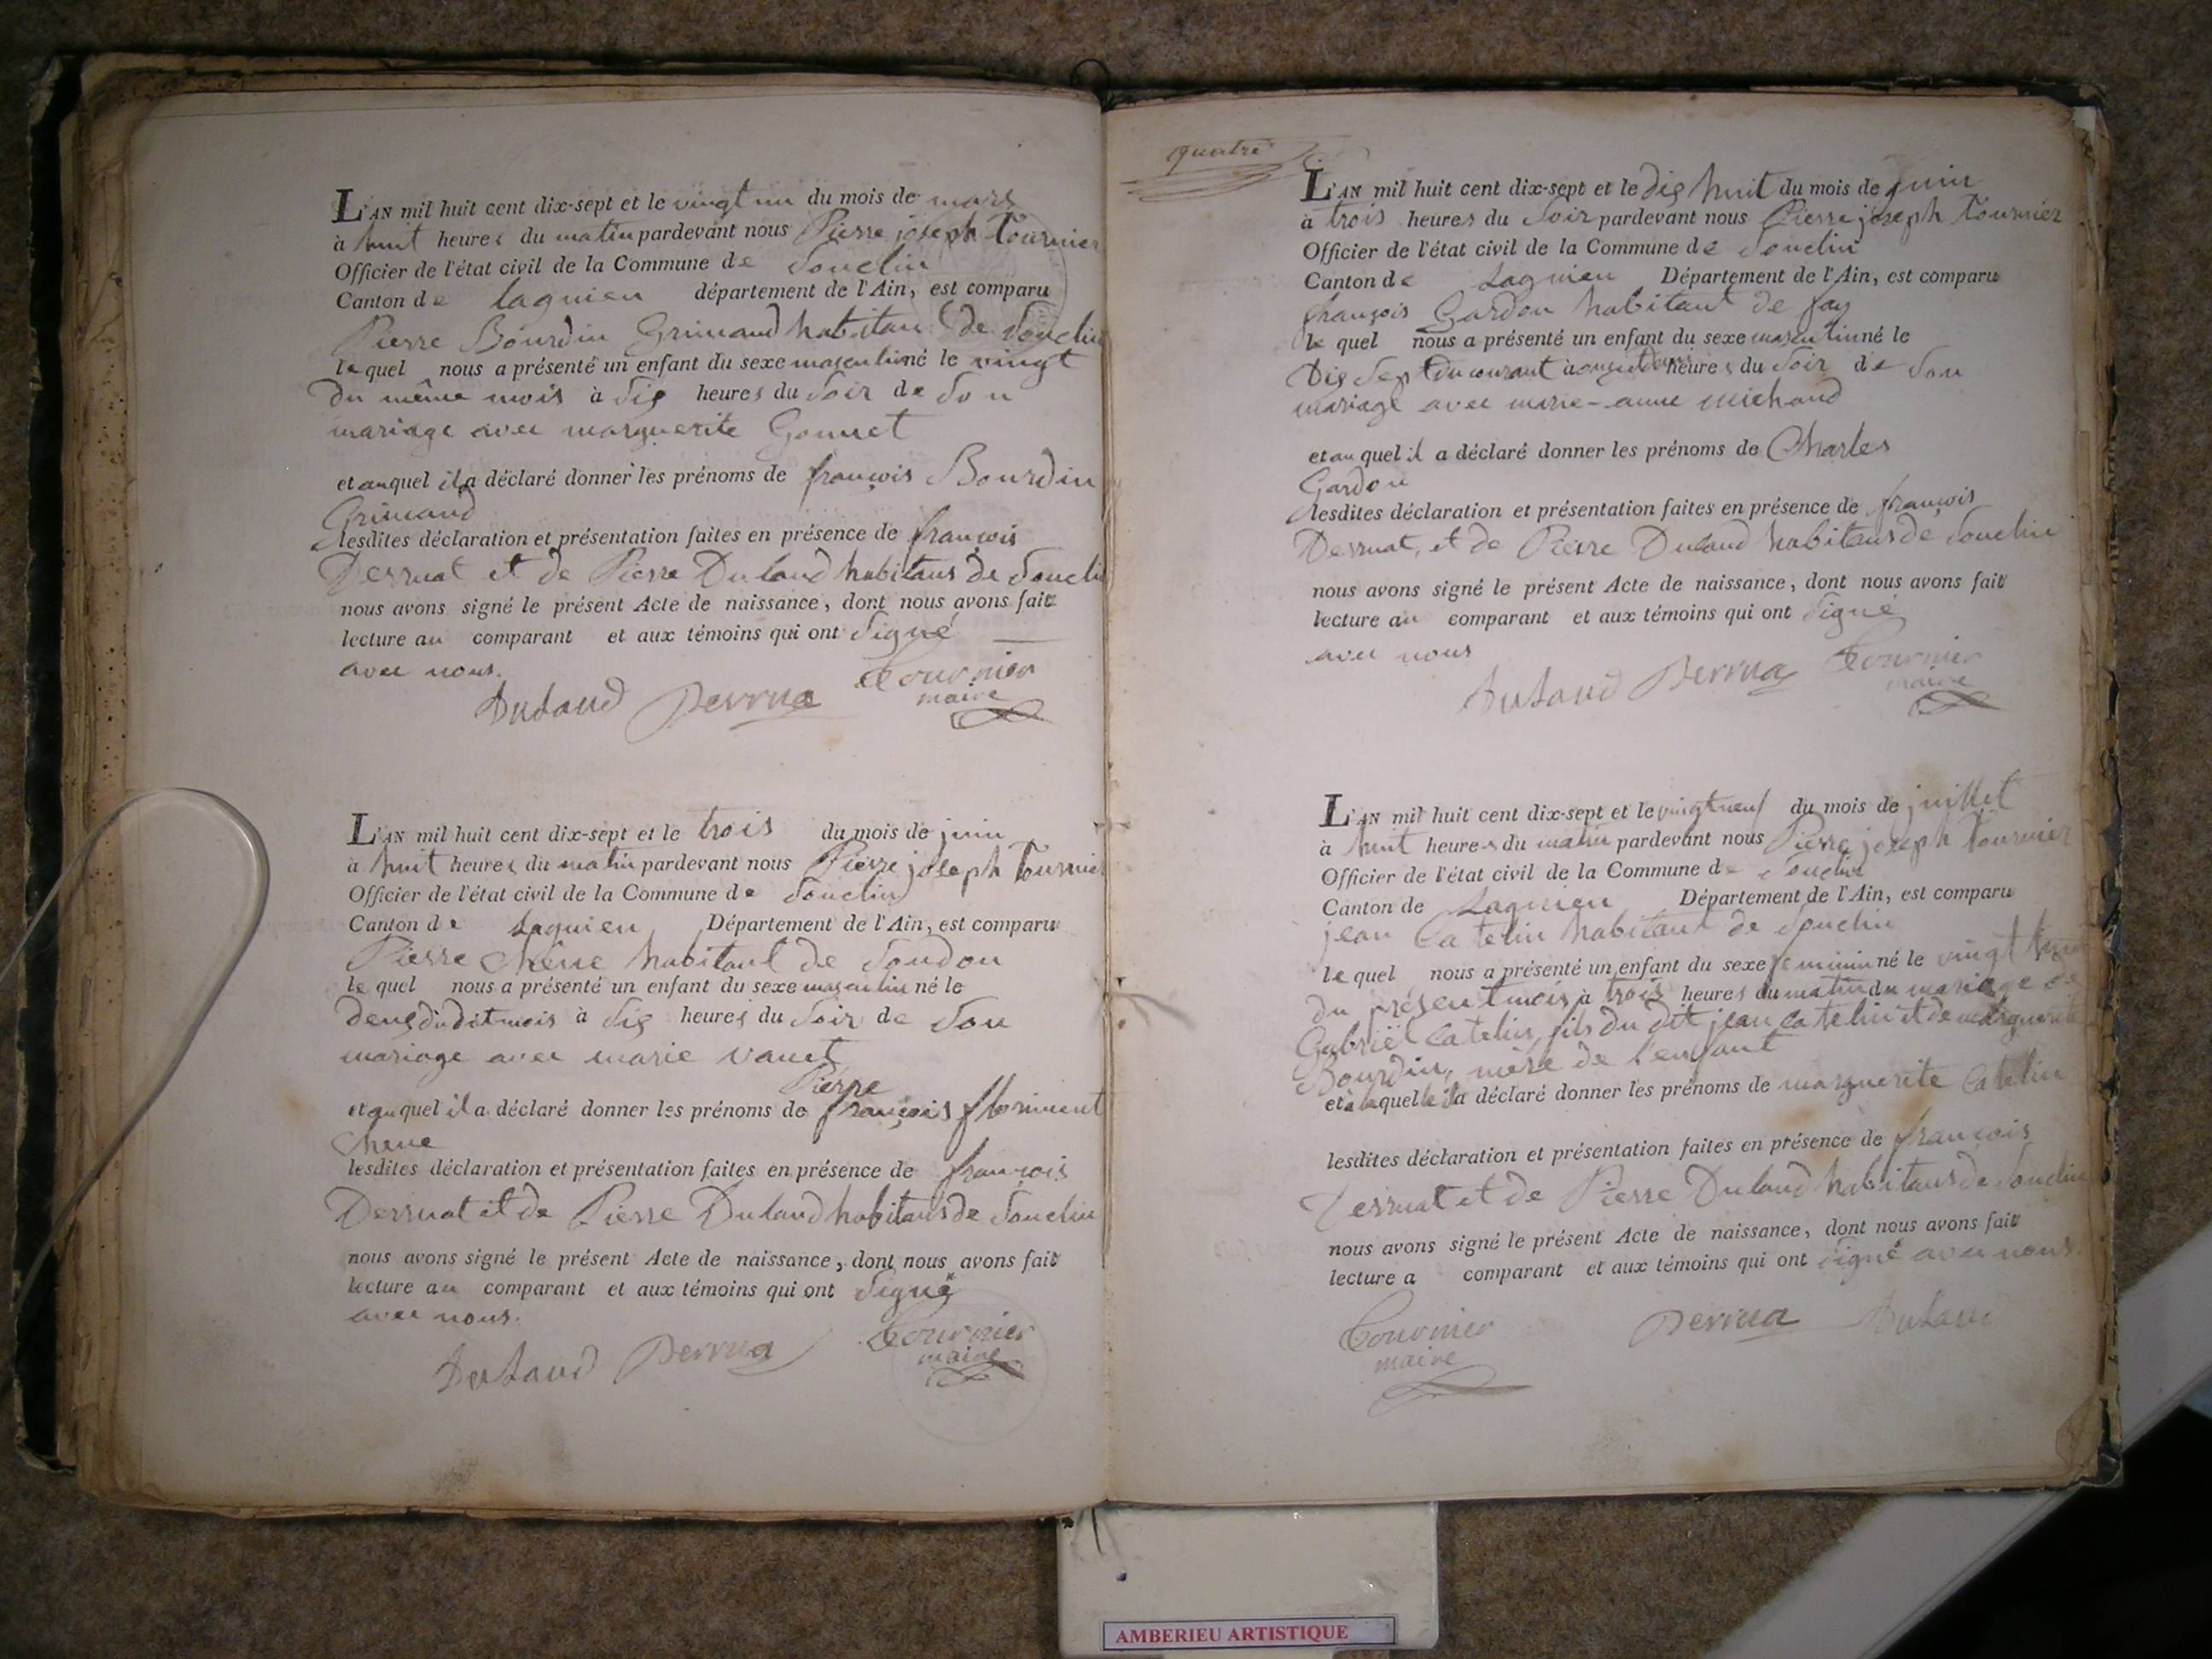 L'AN mil huit cent dix-sept et le vingt un du mois de mars
à huit heures du matin pardevant nous Pierre joseph Tournier
Officier de l'état civil de la Commune de Souclin
Canton de lagnieu département de l'Ain, est comparu
Pierre Bourdin Grimaud habitant de Souclin
lequel nous a présenté un enfant du sexe masculin né le vingt
du même mois à dix heures du soir de son
mariage avec marguerite
et auquel il a déclaré donner les prénoms de françois Bourdin
Grimaud
lesdites déclaration et présentation faites en présence de françois
Derruat et de Pierre Dulaud habitans de Souclin
nous avons signé le présent Acte de naissance, dont nous avons fait
lecture au comparant et aux témoins qui ont signé
avec nous.
Dulaud Derrua Tournier
maire
L'AN mil huit cent dix-sept et le trois du mois de juin
à huit heures du matin pardevant nous Pierre joseph Tournier
Officier de l'état civil de la Commune de Souclin
Canton de Lagnieu Département de l'Ain, est comparu
Pierre Chêne habitant de Soudon
lequel nous a présenté un enfant du sexe masculin né le
deux dudit mois à dix heures du soir de son
mariage avec marie
Pierre
et auquel il a déclaré donner les prénoms de françois floriment
Chene
lesdites déclaration et présentation faites en présence de françois
Derruat et de Pierre Dulaud habitans de Souclin
nous avons signé le présent Acte de naissance, dont nous avons fait
lecture au comparant et aux témoins qui ont signé
avec nous.
Dulaud Derrua Tournier
maire
quatre
L'AN mil huit cent dix-sept et le dix huit du mois de juin
à trois heures du soir pardevant nous Pierre joseph Tournier
Officier de l'état civil de la Commune de Souclin
Canton de Lagnieu Département de l'Ain, est comparu
françois Gardon habitant de fay
lequel nous a présenté un enfant du sexe masculin né le
Dix sept du courant à heures du soir de son
mariage avec marie-anne michaud
et auquel il a déclaré donner les prénoms de Charles
Gardon
lesdites déclaration et présentation faites en présence de françois
Derruat, et de Pierre Dulaud habitans de Souclin
nous avons signé le présent Acte de naissance, dont nous avons fait
lecture au comparant et aux témoins qui ont signé
avec nous
Dulaud Derrua Tournier
maire
L'AN mil huit cent dix-sept et le vingt neuf du mois de juillet
à huit heures du matin pardevant nous Pierre joseph Tournier
Officier de l'état civil de la Commune de Souclin
Canton de Lagnieu Département de l'Ain, est comparu
jean Catelin habitant de Souclin
lequel nous a présenté un enfant du sexe feminin né le vingt
du présent mois à trois heures du matin du mariage de
Gabriël Catelin, fils du dit jean Catelin et de marguerite
Bourdin, mère de l'enfant
et à laquelle il a déclaré donner les prénoms de marguerite Catelin
lesdites déclaration et présentation faites en présence de françois
Derruat et de Pierre Dulaud habitans de Souclin
nous avons signé le présent Acte de naissance, dont nous avons fait
lecture a comparant et aux témoins qui ont signé avec nous.
Tournier Derrua Dulaud
maire
AMBERIEU ARTISTIQUE